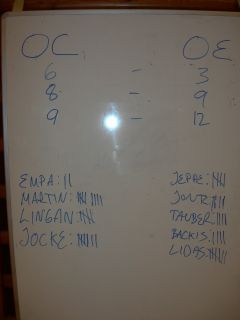 OC OE
6 - 3
8 - 9
9 - 12
EMPA: ||
MARTIN: |||| ||||
LINGAN: ||||
JOCKE: |||| ||
JEPPE: ||||
JONTE: ||
TAUBER: ||||
BACKIS: ||||
LIDAS: |||| ||